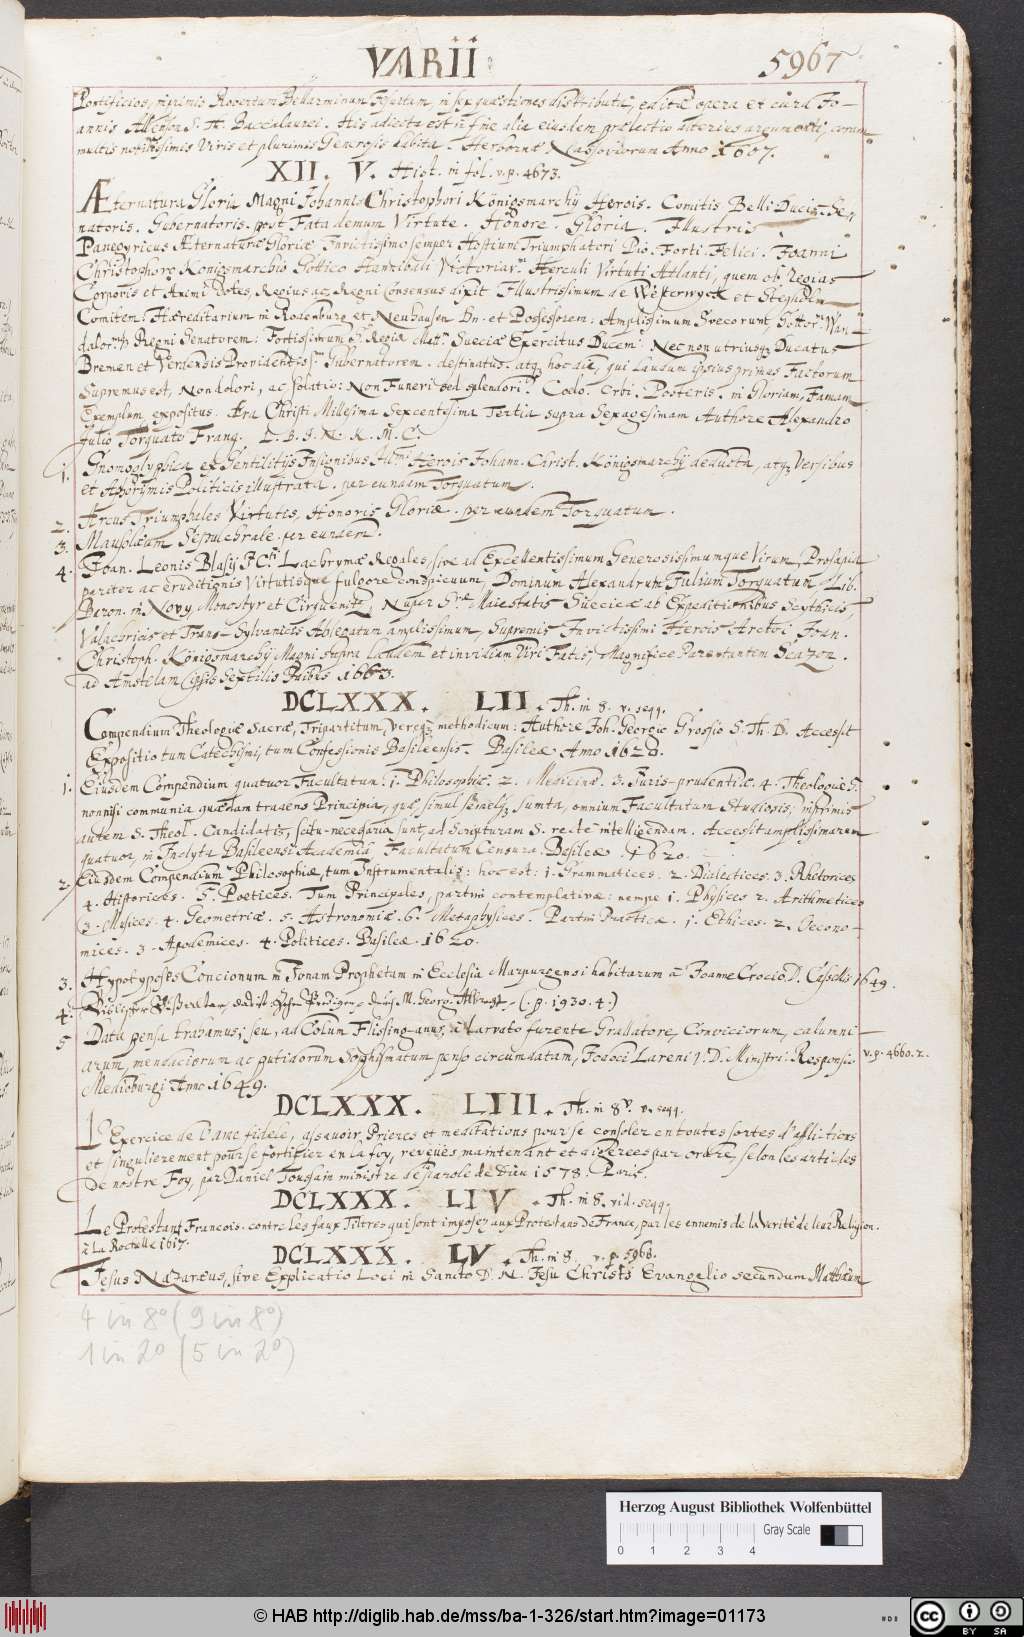 VARII
5967
Pontificios, inprimis Robertum Bellarminum Jesuitam, in sex quæstiones distributa, edita opera et cura Jo-
annis S. Th. Baccalaurei. His adiecta est in fine alia eiusdem prælectio alterius argumenti, coram
multis nobilissimis Viris et plurimis Generosis habita. Herbornæ Nassoviorum Anno 1607.
XII. V. Hist. in fol. v. p. 4673.
Æternatura Gloria Magni Johannis Christophori Königsmarchy Herois. Comitis Belli Ducis. Se-
natoris. Gubernatoris. post Fata demum Virtute. Honore. Gloria. Illustris
Panegyricus Æternaturæ Gloriæ Invictissimo semper Hostium Triumphatori Pio. Forti. Felici. Joanni
Christophoro Konigsmarchio Gottico Hannibali Victoriar. Herculi Virtuti Atlanti, quem ob Regias
Corporis et Animi Dotes, Regius ac Regni Consensus dixit Illustrissimum de Westerwyck et Stegholm
Comitem: Hæreditarium in Rodenburg et Neuhausen Dn. et Possessorem: Amplissimum Svecorum, Gottor. Wan-
dalor. Regni Senatorem: Fortissimum S. Regiæ Mat. Sueciæ Exercitus Ducem: Nec non utriusq Ducatus
Bremen et Verdensis Providentiss. Gubernatorem. destinatus atq hoc die, qui Laudum ipsius primus Factorum
Supremus est, Non dolori, ac solatio: Non Funeri sed splendori. Coelo. Orbi. Posteris. in Gloriam, Famam
Exemplum expositus. Æra Christi Millesima Sexcentesima Tertia supra Sexagesimam Authore Alexandro
Julio Torquato Frang. L. B. J. N. K. M. C.
1. Gnomoglyphica ex Gentilitijs Insignibus Herois Johann. Christ. Königsmarchy deducta, atq Versibus
et Aphorismis Politicis illustrata. per eundem Torquatum.
2. Arcus Triumphales Virtutis, Honoris Gloriæ. per eundem Torquatum.
3. Mausolæum Sepulchrale. per eundem.
4. Joan. Leonis Blasij JCti Lacrymæ Regales, sive ad Excellentissimum Generosissimumque Virum, Prosapia
pariter ac eruditionis Virtutisque fulgore conspicuum, Dominum Alexandrum Julium Torquatum Lib.
Baron. in Novy Monostyr et Cirquenitz, Nuper Maiestatis Sueciæ ab Expeditionibus Scythicis,
Valachicis et Trans-Sylvanicis Ablegatum amplissimum, Supremis Invictissimi Herois Arctoi Joan.
Christoph. Königsmarchy Magni supra laudem et invidiam Viri Fatis, Magnifice Parentantem Scazon.
ad Amstelam ipsis Sextilis Iduibus 1663.
DCLXXX. LII. Th. in 8. v. seqq.
Compendium Theologiæ Sacræ, Tripartitum, Vereq methodicum: Authore Joh. Georgio Grossio S. Th. D. Accessit
Expositio tum Catechismi, tum Confessionis Basileensis. Basileæ Anno 1620.
1. Ejusdem Compendium quatuor Facultatum. 1. Philosophiæ. 2. Medicinæ. 3. Juris-prudentiæ. 4. Theologiæ S.
nonnisi communia quædam tradens Principia, quæ, simul semelq sumta, omnium Facultatum Studiosis; inprimis
autem S. Theol. Candidatis, scitu-necessaria sunt, ad Scripturam S. recte intelligendam. Accessit amplissimarum
quatuor, in Inclyta Basileensi Academia, Facultatum Censura. Basileæ. 1620.
2. Ejusdem Compendium Philosophiæ, tum Instrumentalis: hoc est: 1. Grammatices. 2. Dialectices. 3. Rhetorices
4. Historices. 5. Poetices. Tum Principales, partim contemplativæ: nempe 1. Physices 2. Arithmetices
3. Musices. 4. Geometriæ. 5. Astronomiæ. 6. Metaphysices. Partim Practicæ. 1. Ethices. 2. Oecono-
mices. 3. Apodemices. 4. Politices. Basileæ. 1620.
3. Hypotyposis Concionum in Jonam Prophetam in Ecclesia Marpurgensi habitarum à Joanne Crocio D. Casselis 1649.
4. Zehn Predigen durch M. Georg. Albrecht. (. p. 1930. 4.)
5. Data pensa trahamus; seu, ad Colum Flissing-anus, à Narrato furente Grallatore, Conviciorum, calumni-
arum, mendaciorum ac putidorum Sophismatum penso circumdatam, Jodoci Lareni J. D. Ministri Responsio v. p. 4660. 2.
Medioburgi Anno 1649.
DCLXXX. LIII. Th. in 8v. v. seqq.
L'Exercice de l'ame fidele, assavoir, Prieres et meditations pour se consoler en toutes sortes d'afflictions
et singulierement pour se fortifier en la foy, reveues maintenant et digerees par ordre, selon les articles
de nostre Foy, par Daniel Toussain ministre de parole de Dieu 1578. Paris.
DCLXXX. LIV. Th. in 8. vid. seqq.
Le Protestant Francois. contre les faux Tiltres qui sont imposez aux Protestans de France, par les ennemis de la Verité de leur Religion.
à La Rochelle 1617.
DCLXXX. LV. Th. in 8. v. p. 5968.
Jesus Nazaræus, sive Explicatio Loci in Sancto D. N. Jesu Christi Evangelio secundum Matthæum
4 in 8° (9 in 8°)
1 in 2° (5 in 2°)
Herzog August Bibliothek Wolfenbüttel
Gray Scale
0 1 2 3 4
© HAB http://diglib.hab.de/mss/ba-1-326/start.htm?image=01173
cc BY SA